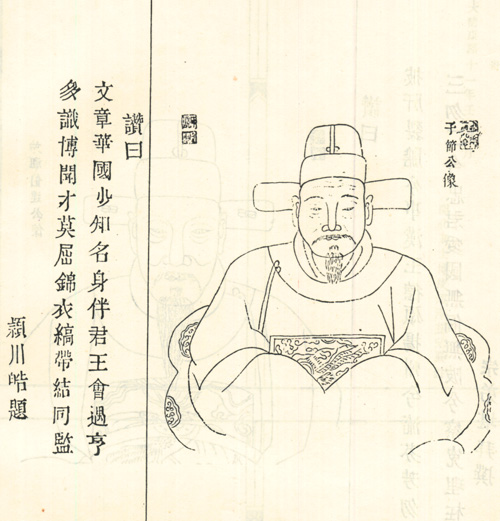 子節公像
讚曰
文章華國少知名身伴君王會遇亨
多識博聞才莫屈錦衣縞帶結同監
潁川皓題